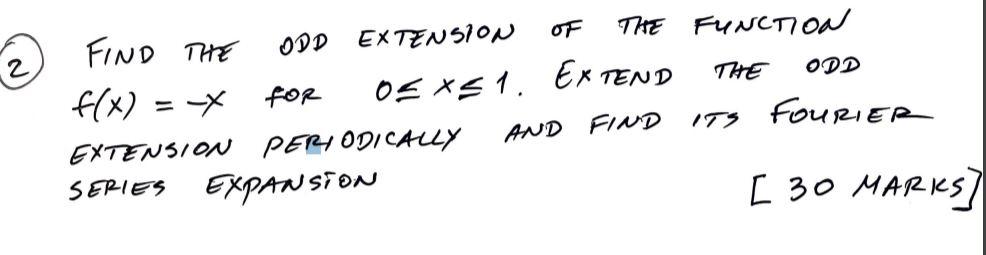 2 FIND THE ODD EXTENSION OF THE FUNCTION
f(x) = -x for 0 ≤ x ≤ 1. EXTEND THE ODD
EXTENSION PERIODICALLY AND FIND ITS FOURIER
SERIES EXPANSION
[30 MARKS]